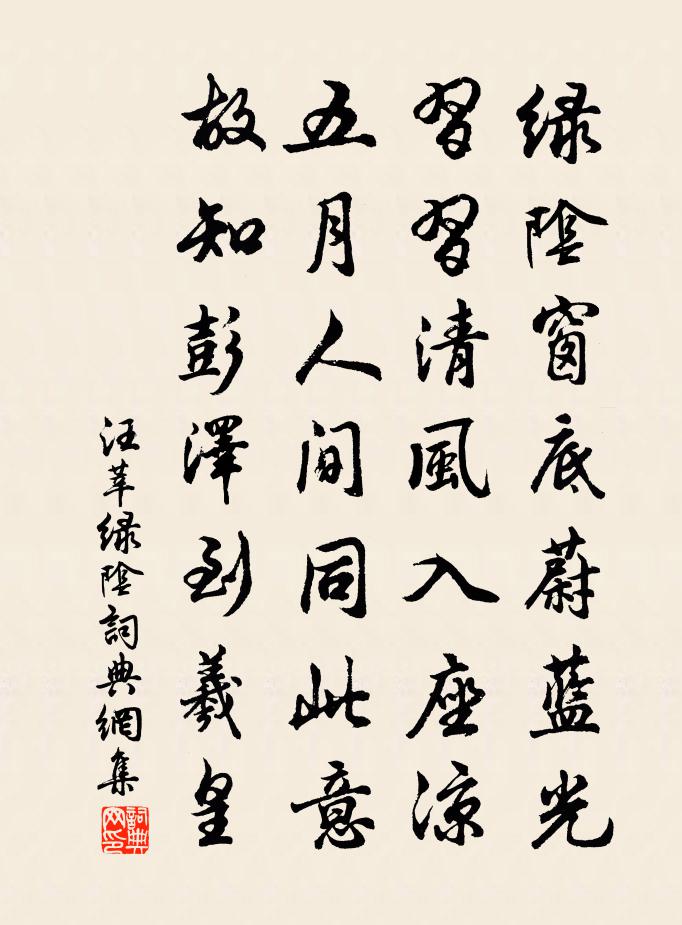 緑陰窗底蔚藍光
習習清風入座涼
五月人间同此意
故知彭澤到羲皇
汪莘緑陰詞典網集
詞典网印